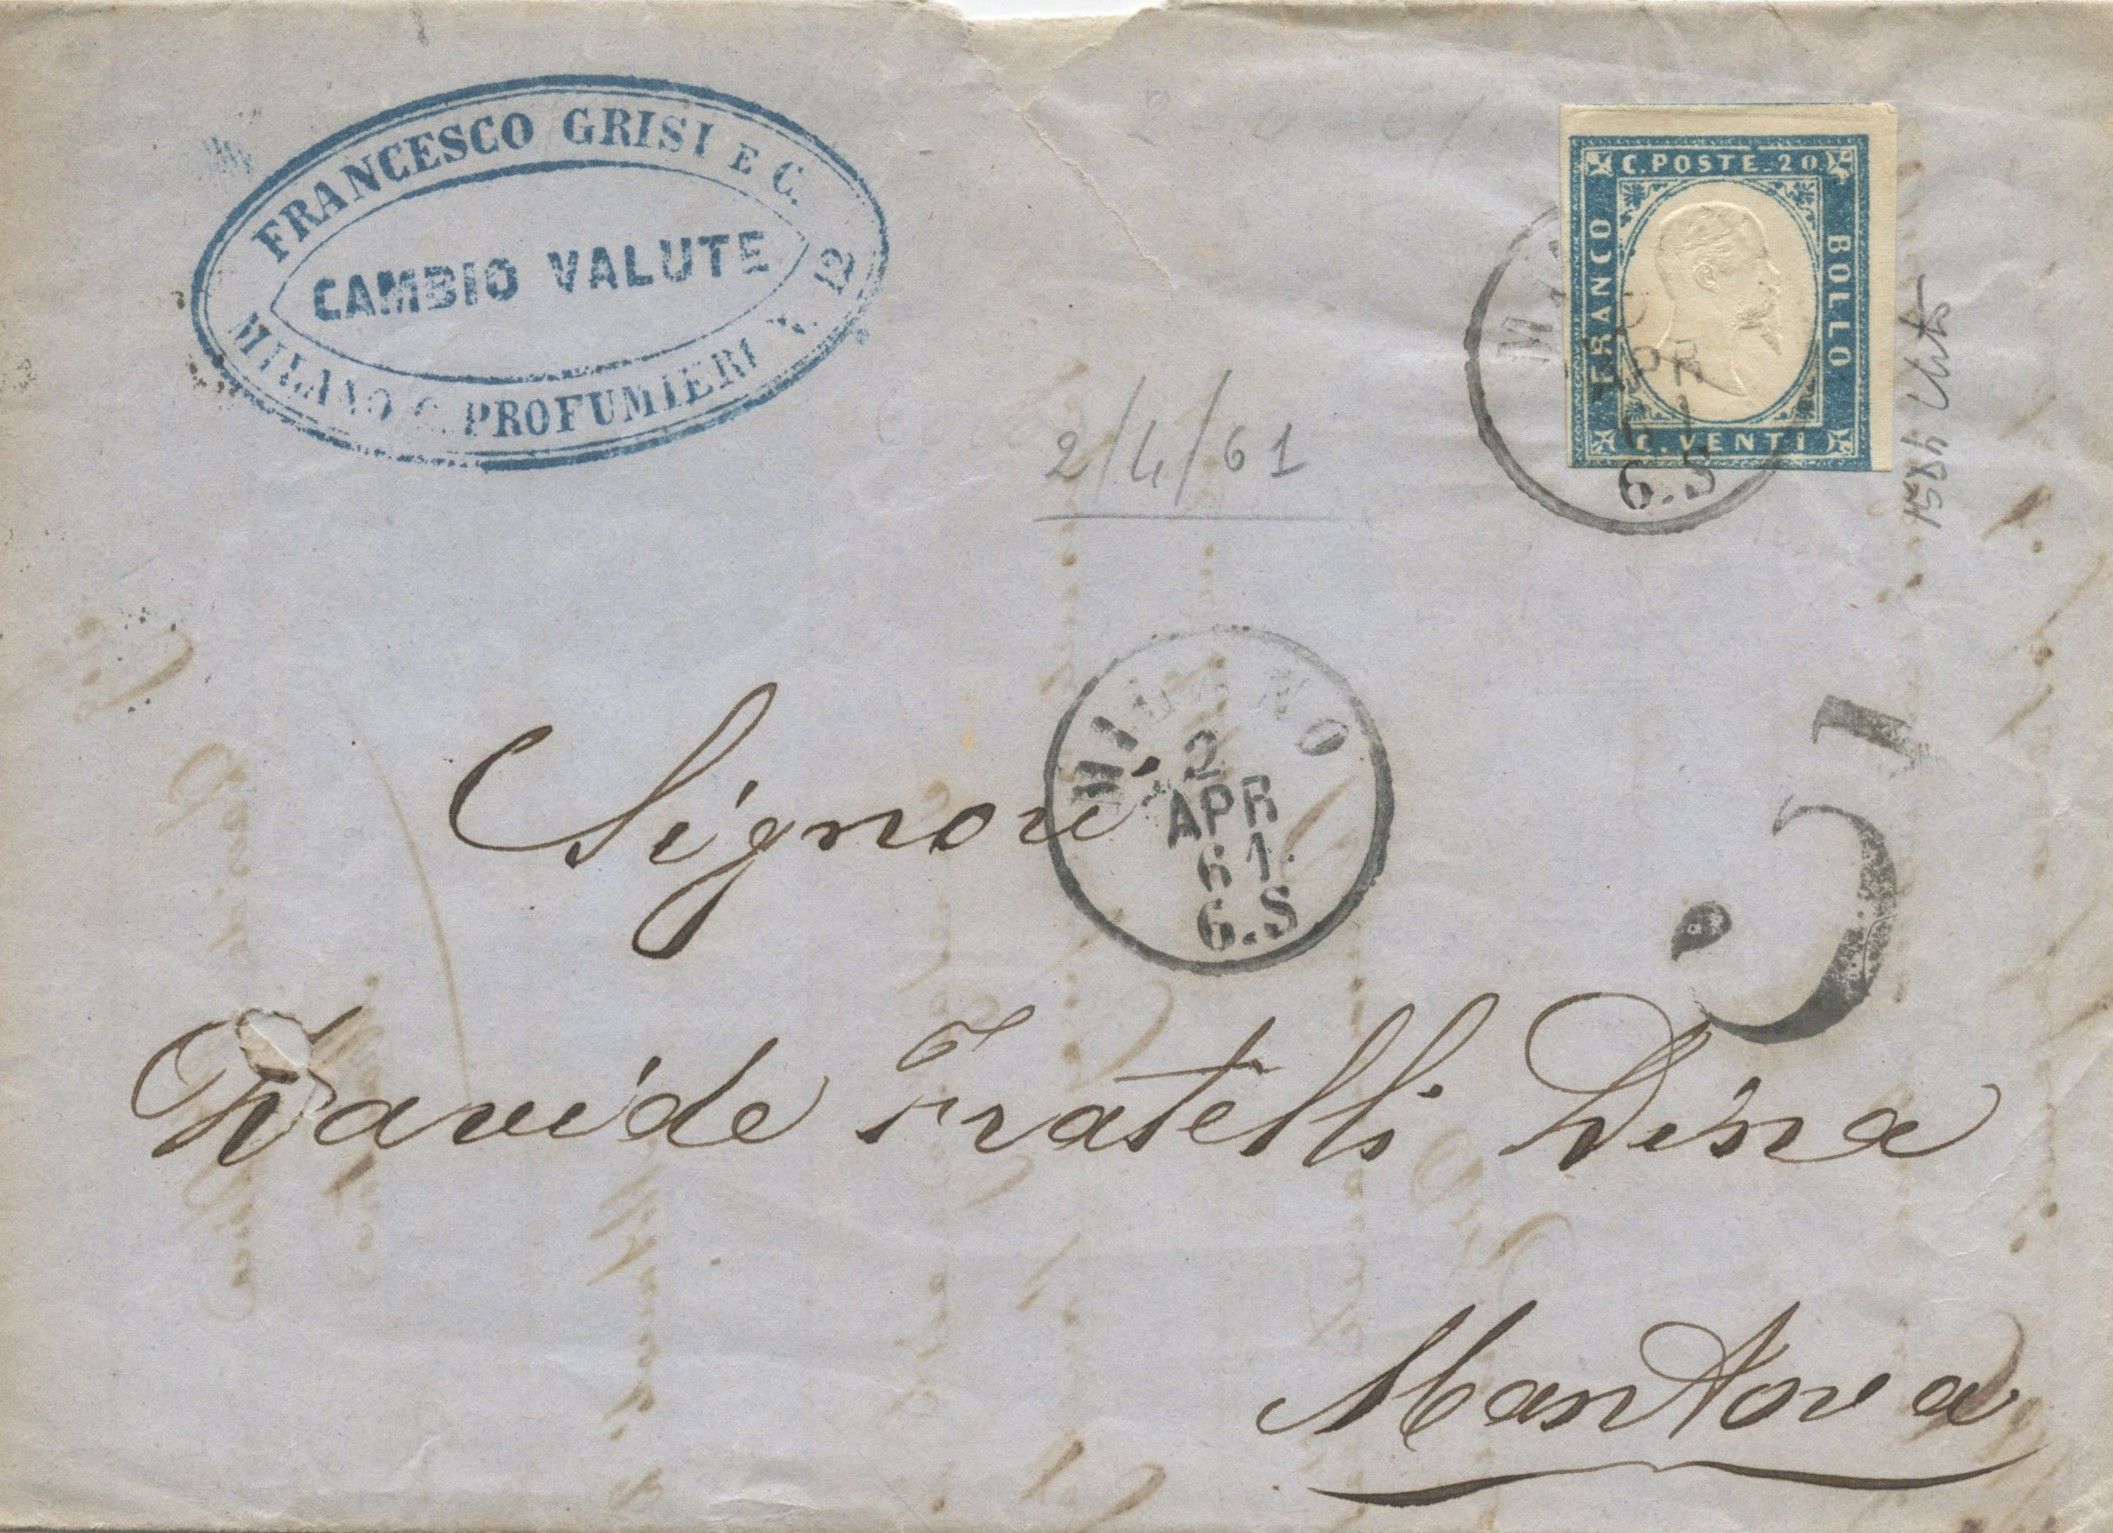 FRANCESCO GRISI E C.
CAMBIO VALUTE
MILANO C. PROFUMIERI N. 12
C. POSTE. 20
FRANCO
BOLLO
C. VENTI
APR
61
6.S
2/4/61
MILANO
2
APR
61
6.S
5
Signori
Davide Fratelli Dina
Mantova